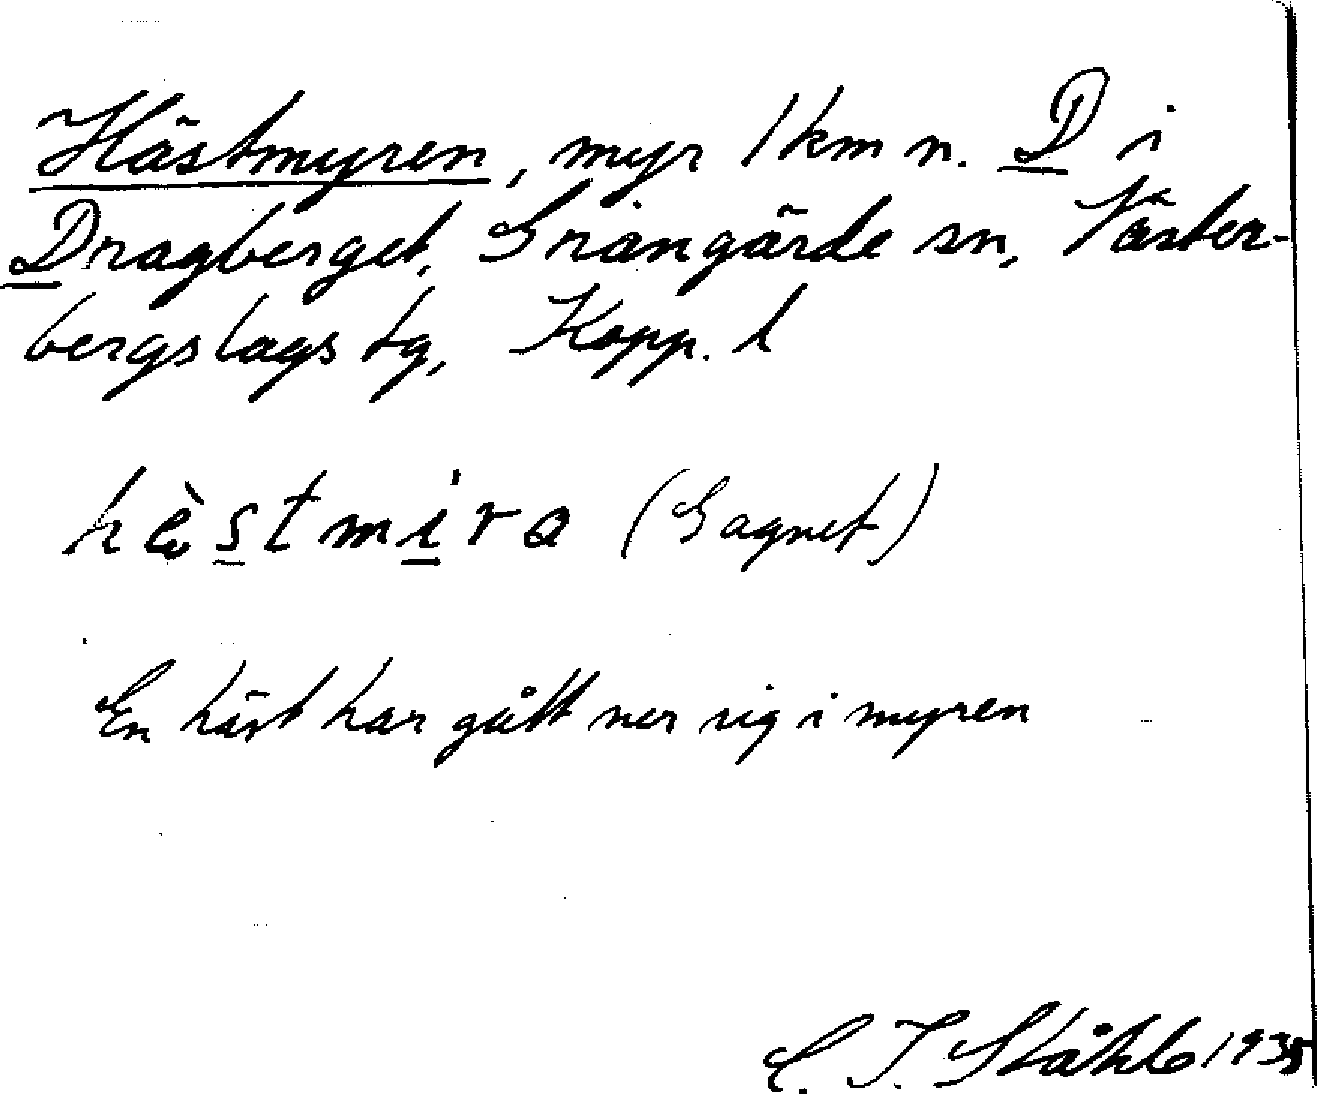 Hästmyren, myr 1 km n. D i
Dragberget, Grangärde sn, Väster-
bergslags tg, Kopp. l
hèstmira (Gagnet)
En häst har gått ner sig i myren
C. I. Ståhle 1935